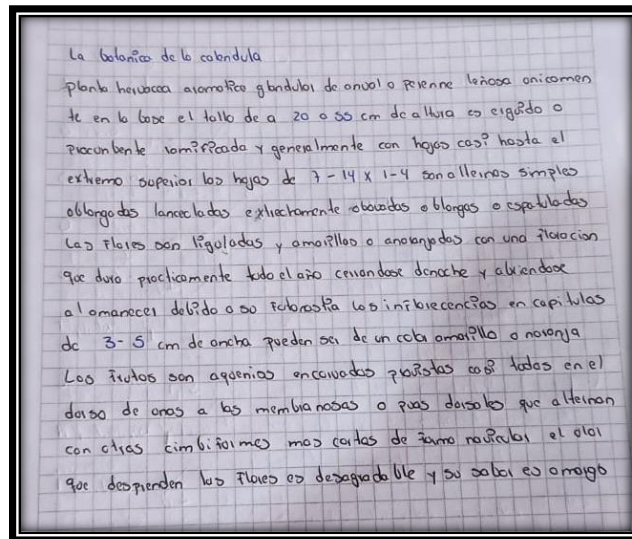 La botanica de la calendula
planta hervacea aromatica glandular de anual o perenne leñosa unicamen
te en la base el tallo de a 20 a 55 cm de altura es erguido o
procunbente ramificada y generalmente con hojas casi hasta el
extremo superior las hojas de 7-14 x 1-4 son alternas simples
oblongadas lanceoladas extrechamente obovadas oblongas o espatuladas
Las flores son liguladas y amarillas o anaranjadas con una floracion
que dura practicamente todo el año cerrandose denoche y abriendose
al amanecer debido a su Los inflorecencias en capitulas
de 3-5 cm de ancha pueden ser de un color amarillo o naranja
Los frutos son aquenios encorvados casi todos en el
dorso de unas a las membranosas o puas dorsales que alternan
con otras cimbiformes mas cortas de el olor
que desprenden las flores es desagradable y su sabor es amargo